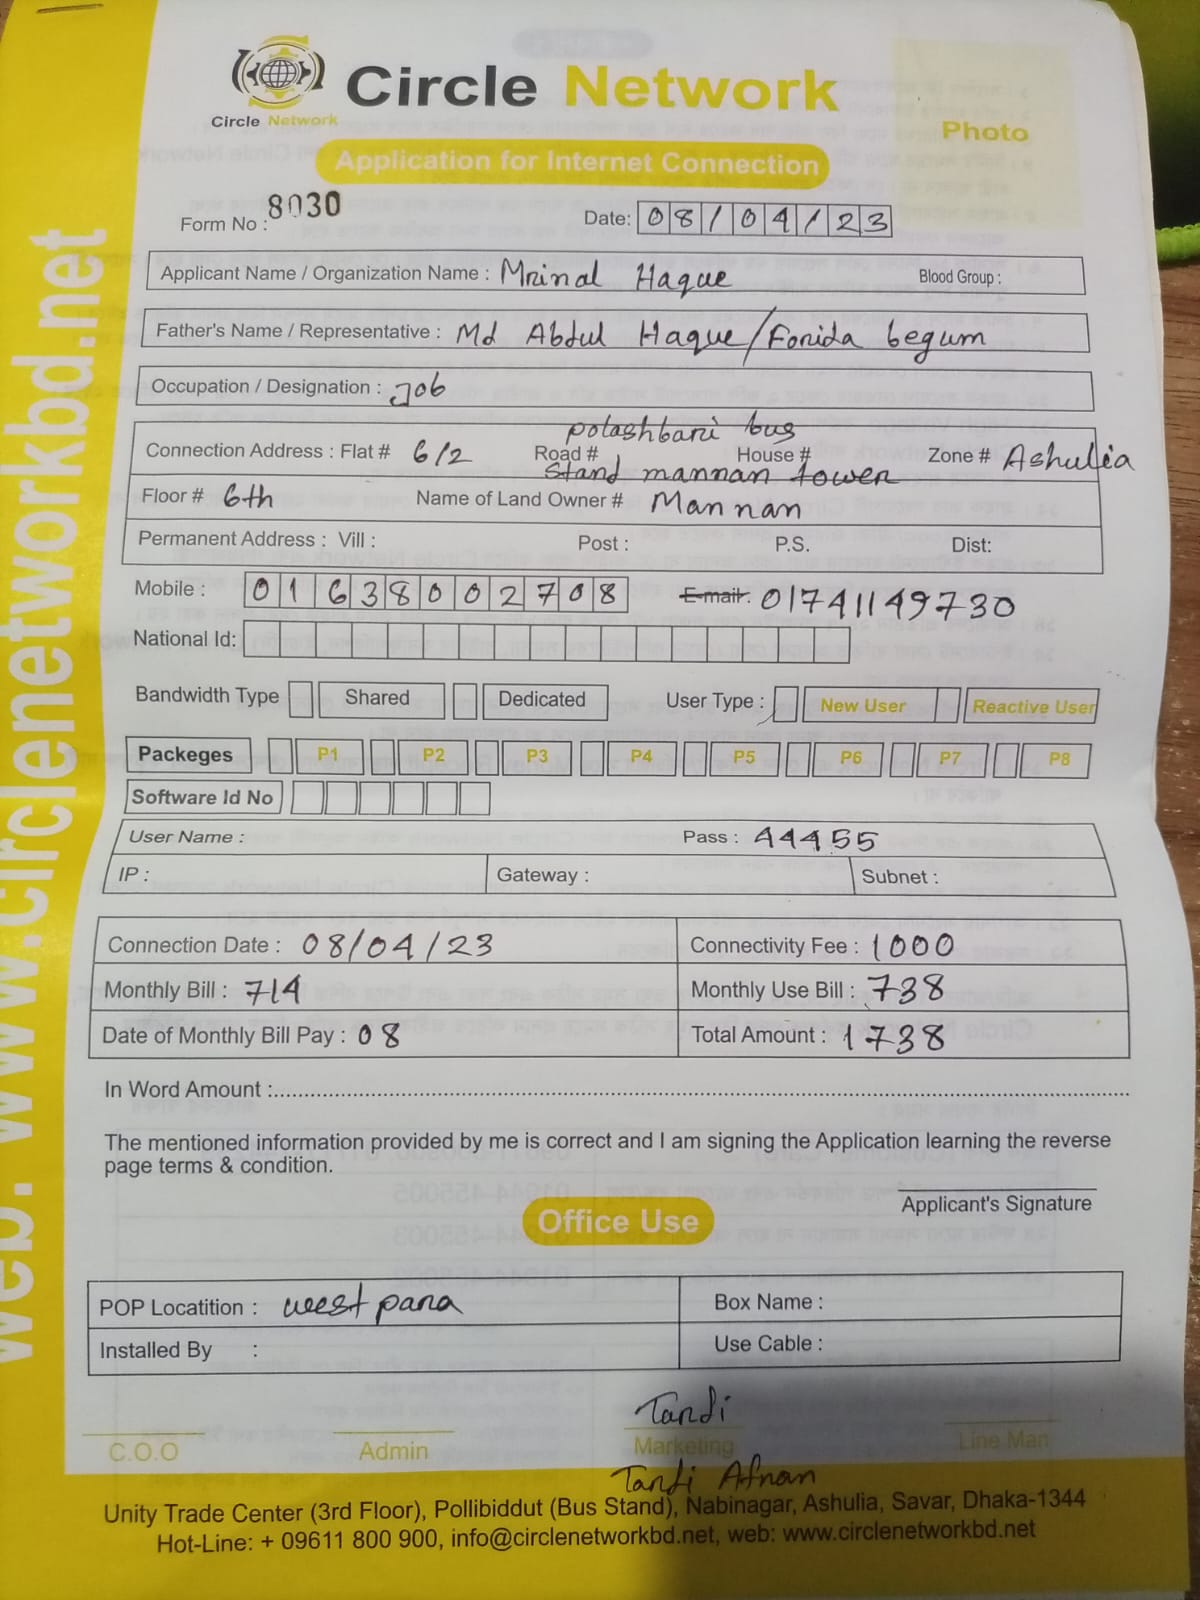 Circle Network
Circle Network
Photo
Application for Internet Connection
Form No : 8030
Date: 08/04/23
Applicant Name / Organization Name : Mrinal Haque Blood Group :
Father's Name / Representative : Md Abdul Haque/Forida begum
Occupation / Designation : Job
polashbari bus
Connection Address : Flat # 6/2 Road # House # Zone # Ashulia
Stand mannan tower
Floor # 6th Name of Land Owner # Mannan
Permanent Address : Vill : Post : P.S. Dist:
Mobile : 01638002708 E-mail: 01741149730
National Id:
Bandwidth Type Shared Dedicated User Type : New User Reactive User
Packeges P1 P2 P3 P4 P5 P6 P7 P8
Software Id No
User Name : Pass : 44455
IP : Gateway : Subnet :
Connection Date : 08/04/23 Connectivity Fee : 1000
Monthly Bill : 714 Monthly Use Bill : 738
Date of Monthly Bill Pay : 08 Total Amount : 1738
In Word Amount :
The mentioned information provided by me is correct and I am signing the Application learning the reverse
page terms & condition.
Applicant's Signature
Office Use
POP Locatition : west para Box Name :
Installed By : Use Cable :
Tandi
C.O.O Admin Marketing Line Man
Tandi Afnan
Unity Trade Center (3rd Floor), Pollibiddut (Bus Stand), Nabinagar, Ashulia, Savar, Dhaka-1344
Hot-Line: + 09611 800 900, info@circlenetworkbd.net, web: www.circlenetworkbd.net
web: www.circlenetworkbd.net